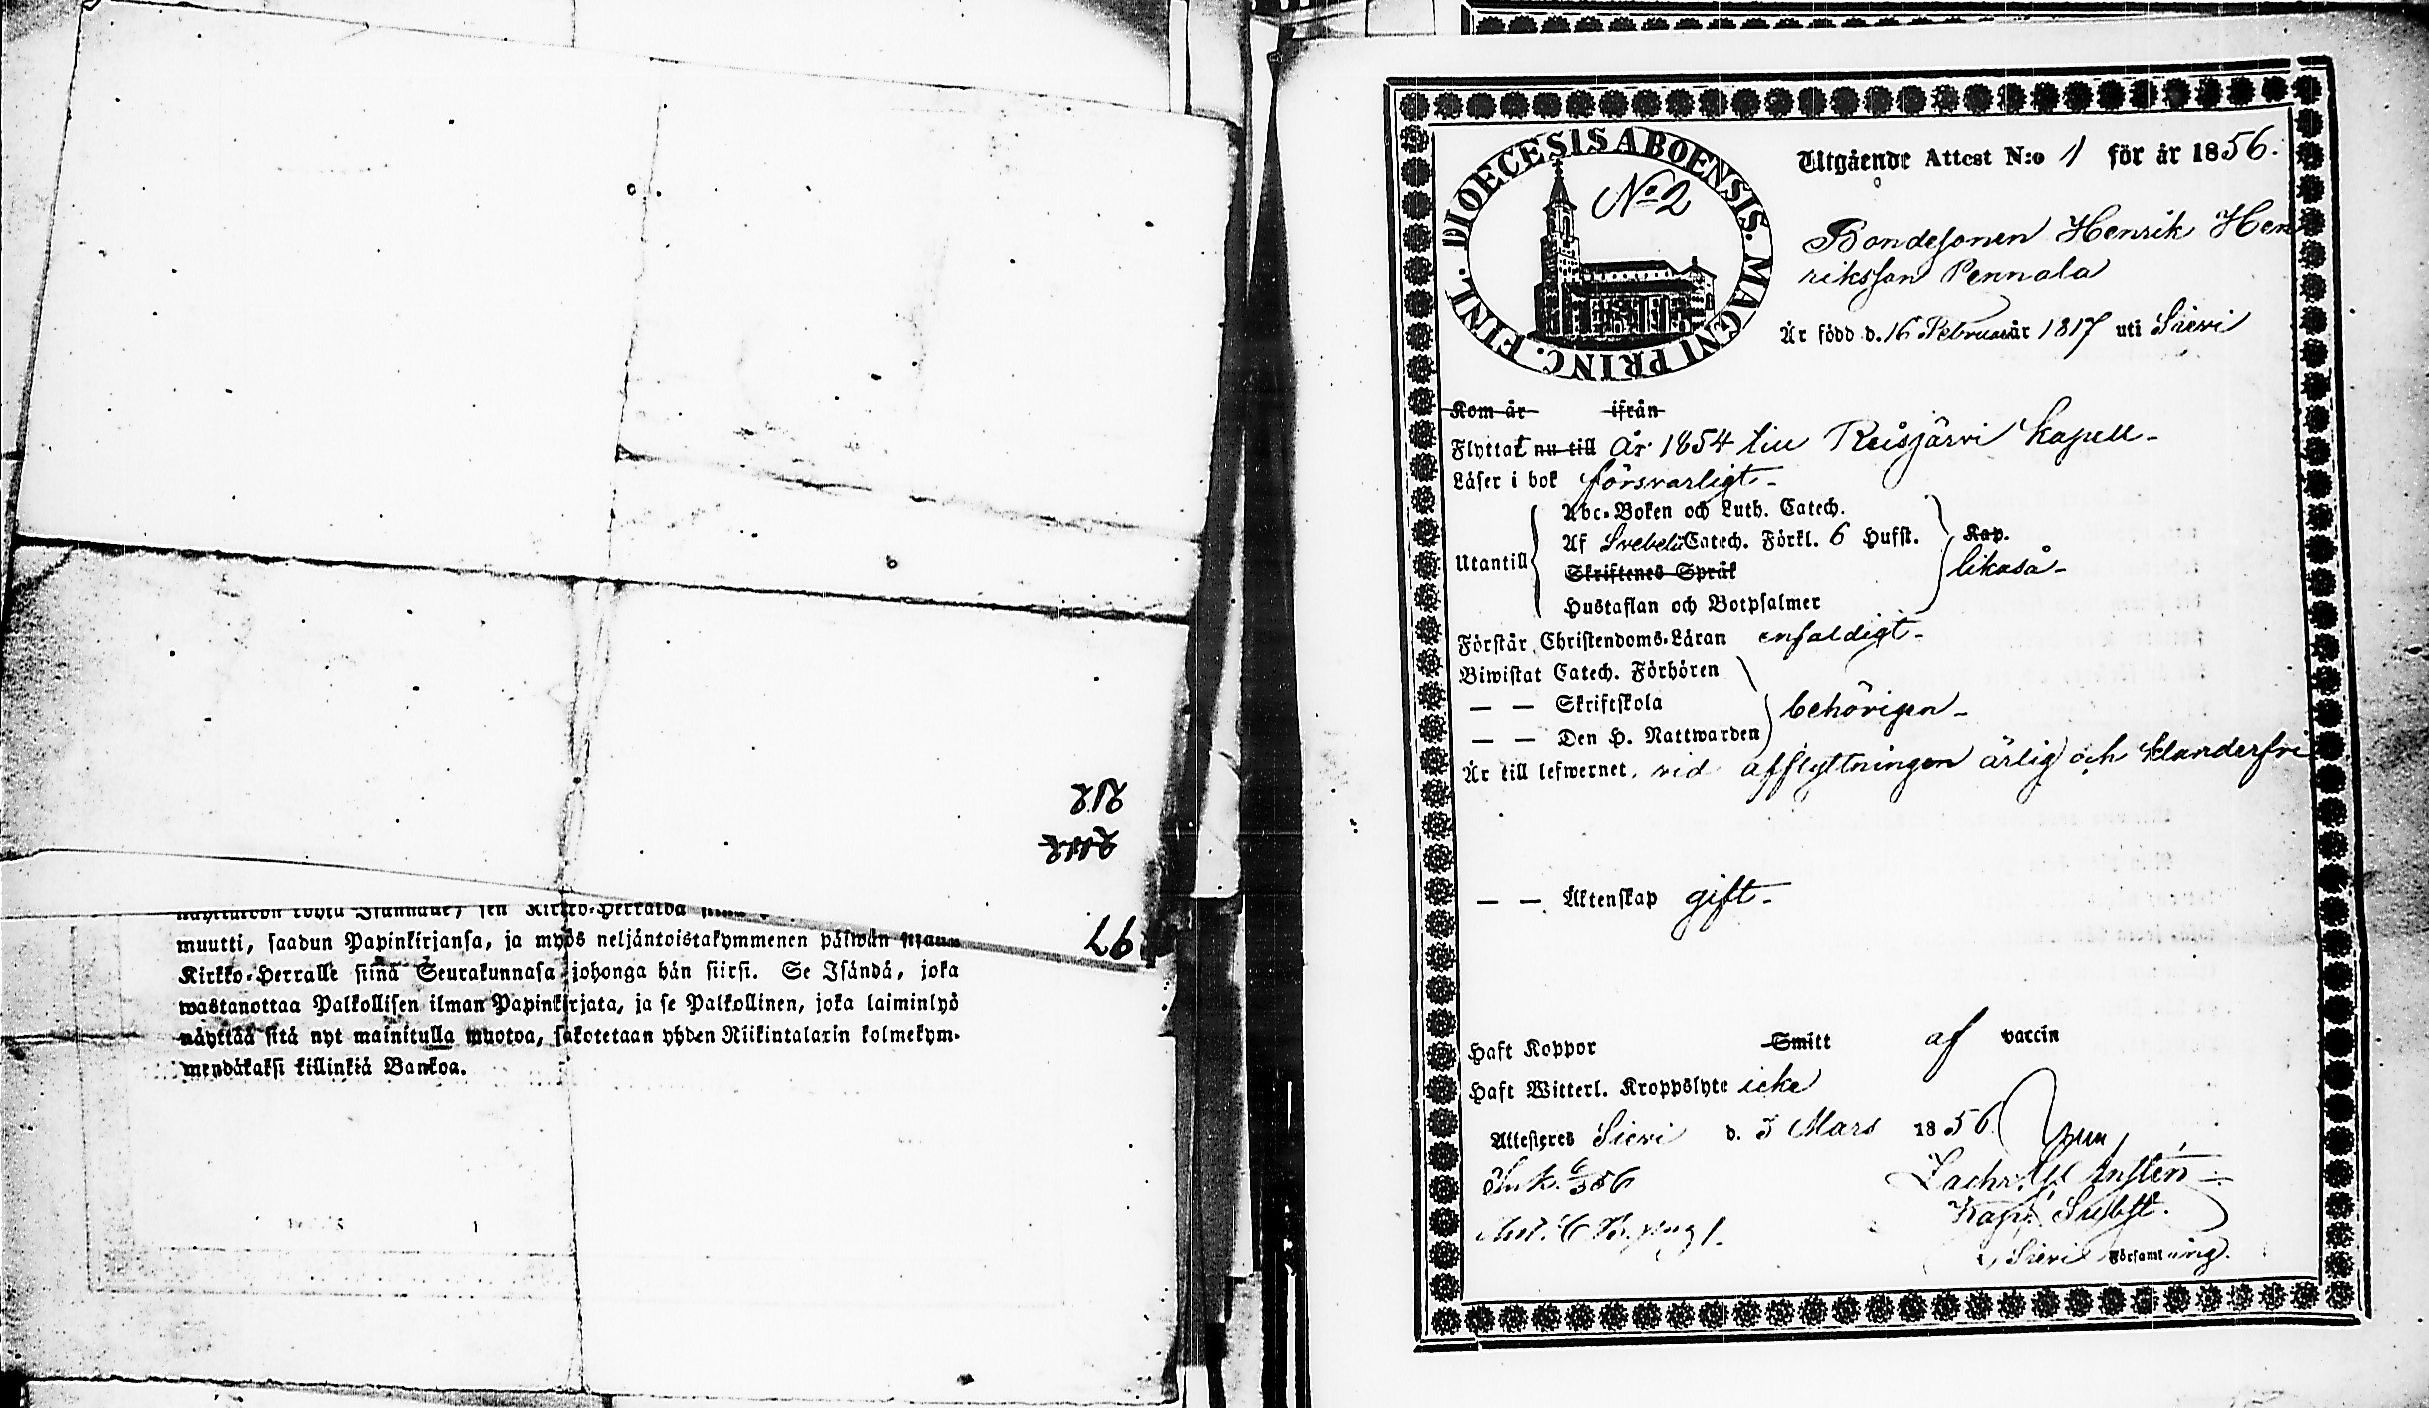 muutti, saadun Papinkirjansa, ja myös neljäntoistakymmenen päiwän
Kirkko-Herralle siinä Seurakunnasa johonga hän siirsi. Se Isändä, joka
wastanottaa Palkollisen ilman Papinkirjata, ja se Palkollinen, joka laiminlyö
näyttää sitä nyt mainitulla muotoa, sakotetaan yhden Riikintalarin kolmekym-
mendäkaksi killinkiä Bankoa.
97
DIOECESIS ABOENSIS. MAGNI PRINC. FINL.
No 2
Utgående Attest N:o 1 för år 1856.
Bondesonen Henrik Hen
riksson Pennala
Är född d. 16 Februar 1817 uti Sievi
Kom år ifrån
Flyttat nu till år 1854 till Reisjärvi Kapell-
Läser i bok försvarligt-
Utantill
Abc-Boken och Luth. Catech.
Af Svebelii Catech. Förkl. 6 Hufst. Kap.
Skriftenes Språk
likaså-
Hustaflan och Botpsalmer
Förstår Christendoms-Läran enfaldigt-
Biwistat Catech. Förhören
— — Skriftskola
behörigen-
— — Den H. Nattwarden
Är till lefwernet, vid afflyttningen ärlig och klanderfri
— — Äktenskap gift-
Haft Koppor Smitt af vaccin
Haft Witterl. Kroppslyte icke
Attesteres Sievi d. 3 Mars 1856
Ink. 6/3 56
Kapl. Subst.
i Sievi Församling.